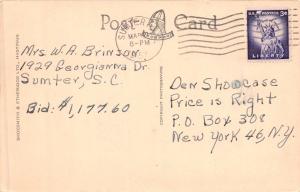 Post Card
SUMTER
MAR
6-PM
U.S. POSTAGE 3¢
LIBERTY
Mrs W.A. Brinson
1929 Georgianna Dr.
Sumter, S.C.
Bid: $1,177.60
Den Showcase
Price is Right
P.O. Box 308
New York 46, N.Y.